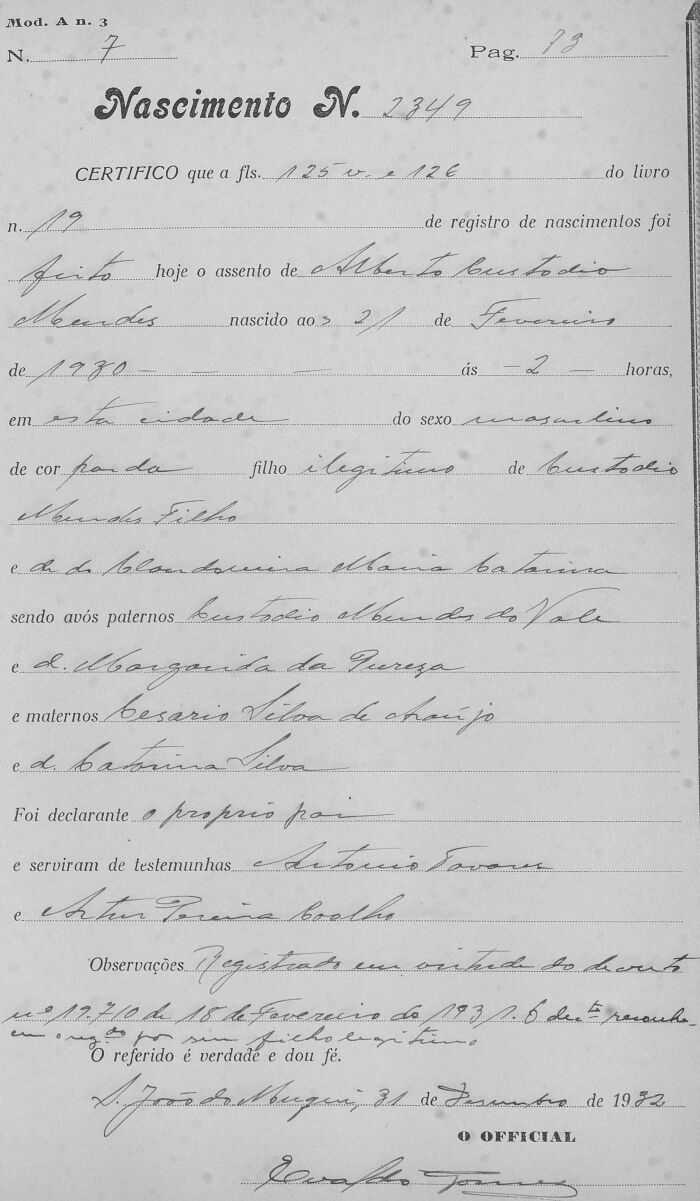 Mod. A n. 3
N. 7 Pag. 73
Nascimento N. 2349
CERTIFICO que a fls. 125 v. e 126 do livro
n. 19 de registro de nascimentos foi
feito hoje o assento de Alberto Custodio
Mendes nascido aos 21 de Fevereiro
de 1930 - - - ás - 2 - horas,
em esta cidade do sexo masculino
de cor parda filho ilegitimo de Custodio
Mendes Filho
e de d. Maria Catarina
sendo avós paternos Custodio Mendes do Vale
e d. Margarida da Pureza
e maternos Cesario Silva de Araújo
e d. Catarina Silva
Foi declarante o proprio pai
e serviram de testemunhas Antonio Tavares
e Artur Pereira Coelho
Observações Registrado em virtude do decreto
nº 19.710 de 18 de Fevereiro de 1931. O decte reconhe
ceu o regdo por seu filho legitimo
O referido é verdade e dou fé.
S. João do Muqui, 31 de Dezembro de 1932
O OFFICIAL
Evaldo Gomes